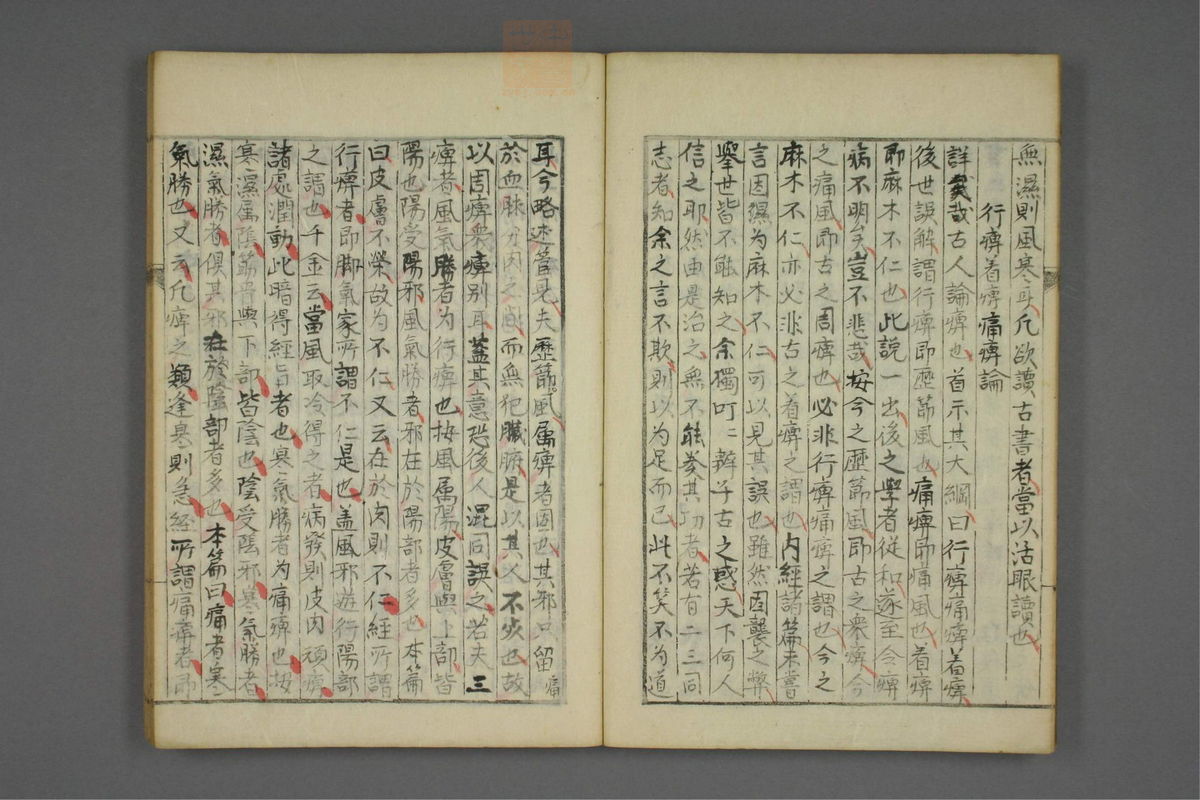 無濕則風寒耳凡欲讀古書者當以活眼讀也
行痺着痺痛痺論
詳哉古人論痺也首示其大綱曰行痺痛痺着痺
後世誤解謂行痺即歷節風也痛痺即痛風也着痺
即麻木不仁也此說一出後之學者從和遂至令痺
病不明矣豈不悲哉按今之歷節風即古之衆痺今
之痛風即古之周痺也必非行痺痛痺之謂也今之
麻木不仁亦必非古之着痺之謂也內經諸篇未嘗
言因濕為麻木不仁可以見其誤也雖然因襲之弊
舉世皆不能知之余獨叮々辨千古之惑天下何人
信之耶然由是治之無不能奏其功者若有二三同
志者知余之言不欺則以為足而已此不笑不為道
耳今略述管見夫歷節風属痺者固也其邪只留
於血脉分肉之間而無犯臟腑是以其人不死也故
以周痺衆痺别耳蓋其意恐後人混同誤之若夫三
痺者風氣勝者為行痺也按風属陽皮膚與上部皆
陽也陽受陽邪風氣勝者邪在於陽部者多也本篇
曰皮膚不榮故為不仁又云在於肉則不仁經所謂
行痺者即脚氣家所謂不仁是也盖風邪遊行陽部
之謂也千金云當風取冷得之者病發則皮肉頑痺
諸處潤動此暗得經旨者也寒氣勝者為痛痺也按
寒濕属陰筋骨與下部皆陰也陰受陰邪寒氣勝者
濕氣勝者俱其邪在於陰部者多也本篇曰痛者寒
氣勝也又云凡痺之類逢寒則急經所謂痛痺者即